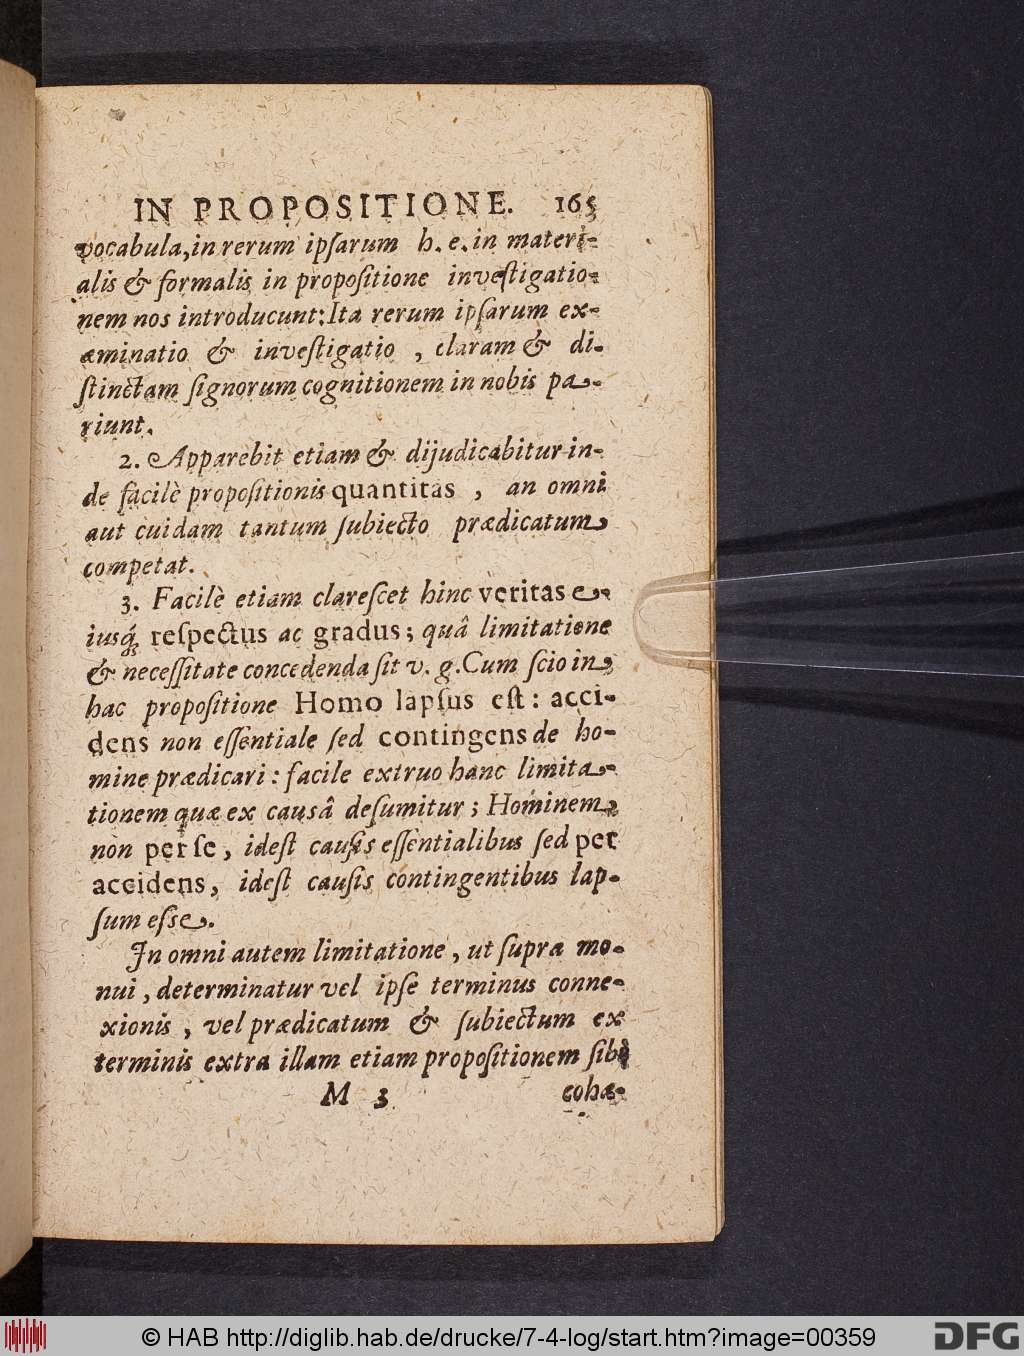 IN PROPOSITIONE. 165
vocabula, in rerum ipſarum h. e. in materi-
alis & formalis in propoſitione inveſtigatio-
nem nos introducunt: Ita rerum ipſarum ex-
aminatio & inveſtigatio , claram & di-
ſtinctam ſignorum cognitionem in nobis pa-
riunt.
2. Apparebit etiam & dijudicabitur in-
de facilè propoſitionis quantitas , an omni
aut cuidam tantum ſubiecto prædicatum
competat.
3. Facilè etiam clareſcet hinc veritas e-
iusq́; reſpectus ac gradus; quâ limitatione
& neceſſitate concedenda ſit v. g. Cum ſcio in
hac propoſitione Homo lapſus eſt: acci-
dens non eſſentiale ſed contingens de ho-
mine prædicari: facile extruo hanc limita-
tionem quæ ex causâ deſumitur; Hominem
non per ſe, ideſt cauſis eſſentialibus ſed per
accidens, ideſt cauſis contingentibus lap-
ſum eſse.
In omni autem limitatione, ut ſupra mo-
nui, determinatur vel ipſe terminus conne-
xionis , vel prædicatum & ſubiectum ex
terminis extra illam etiam propoſitionem ſibi
M 3 cohæ-
© HAB http://diglib.hab.de/drucke/7-4-log/start.htm?image=00359
DFG